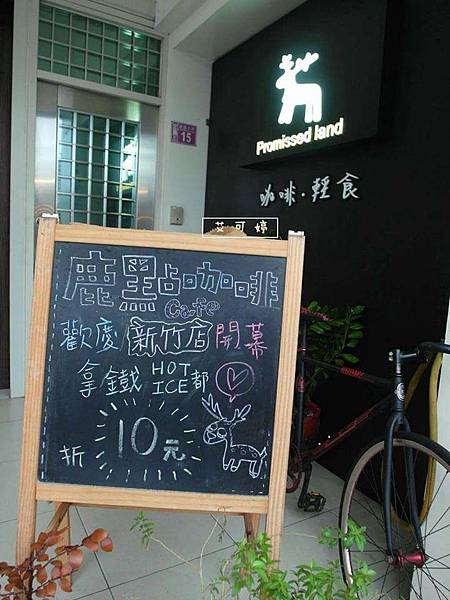 15
Promissed land
咖啡·輕食
艾可婷
鹿點咖啡
Cafe
歡慶新竹店開幕
拿鐵 HOT ICE 都
折 10元